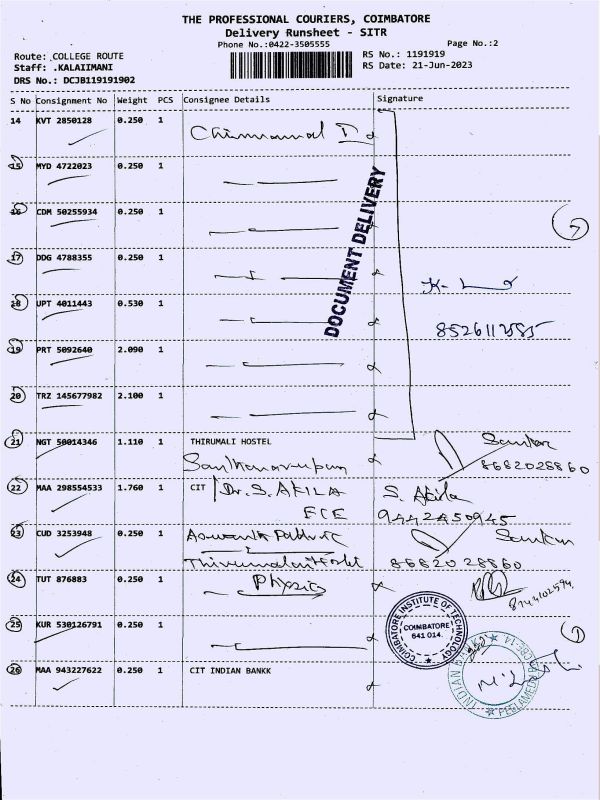 THE PROFESSIONAL COURIERS, COIMBATORE
Delivery Runsheet - SITR
Phone No.:0422-3505555
Page No.:2
Route: COLLEGE ROUTE
RS No.: 1191919
Staff: .KALAIIMANI
RS Date: 21-Jun-2023
DRS No.: DCJB119191902
S No Consignment No Weight PCS Consignee Details Signature
14 KVT 2850128 0.250 1
15 MYD 4722023 0.250 1
16 CDM 50255934 0.250 1
17 DDG 4788355 0.250 1
DOCUMENT DELIVERY
18 UPT 4011443 0.530 1
8526112585
19 PRT 5092640 2.090 1
20 TRZ 145677982 2.100 1
21 NGT 50014346 1.110 1 THIRUMALI HOSTEL
8682028860
22 MAA 298554533 1.760 1 CIT Dr. S. AKILA S. Akila
ECE 9442450945
23 CUD 3253948 0.250 1
8682028860
24 TUT 876883 0.250 1 Physics
25 KUR 530126791 0.250 1
COIMBATORE INSTITUTE OF TECHNOLOGY
COIMBATORE
641 014.
26 MAA 943227622 0.250 1 CIT INDIAN BANKK
INDIAN BANK